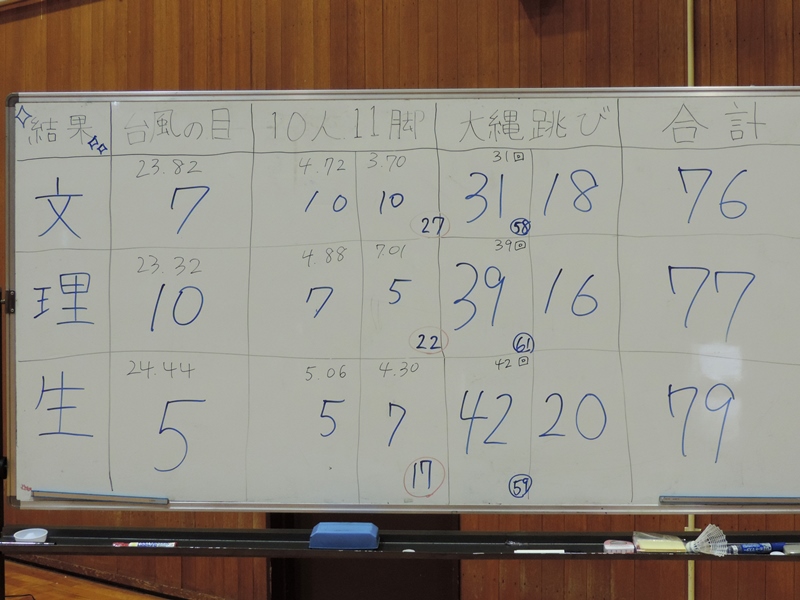 結果 台風の目 10人11脚 大縄跳び 合計
23.82 4.72 3.70 31回
文 7 10 10 31 18 76
27 58
23.32 4.88 7.01 39回
理 10 7 5 39 16 77
22 61
24.44 5.06 4.30 42回
生 5 5 7 42 20 79
17 59